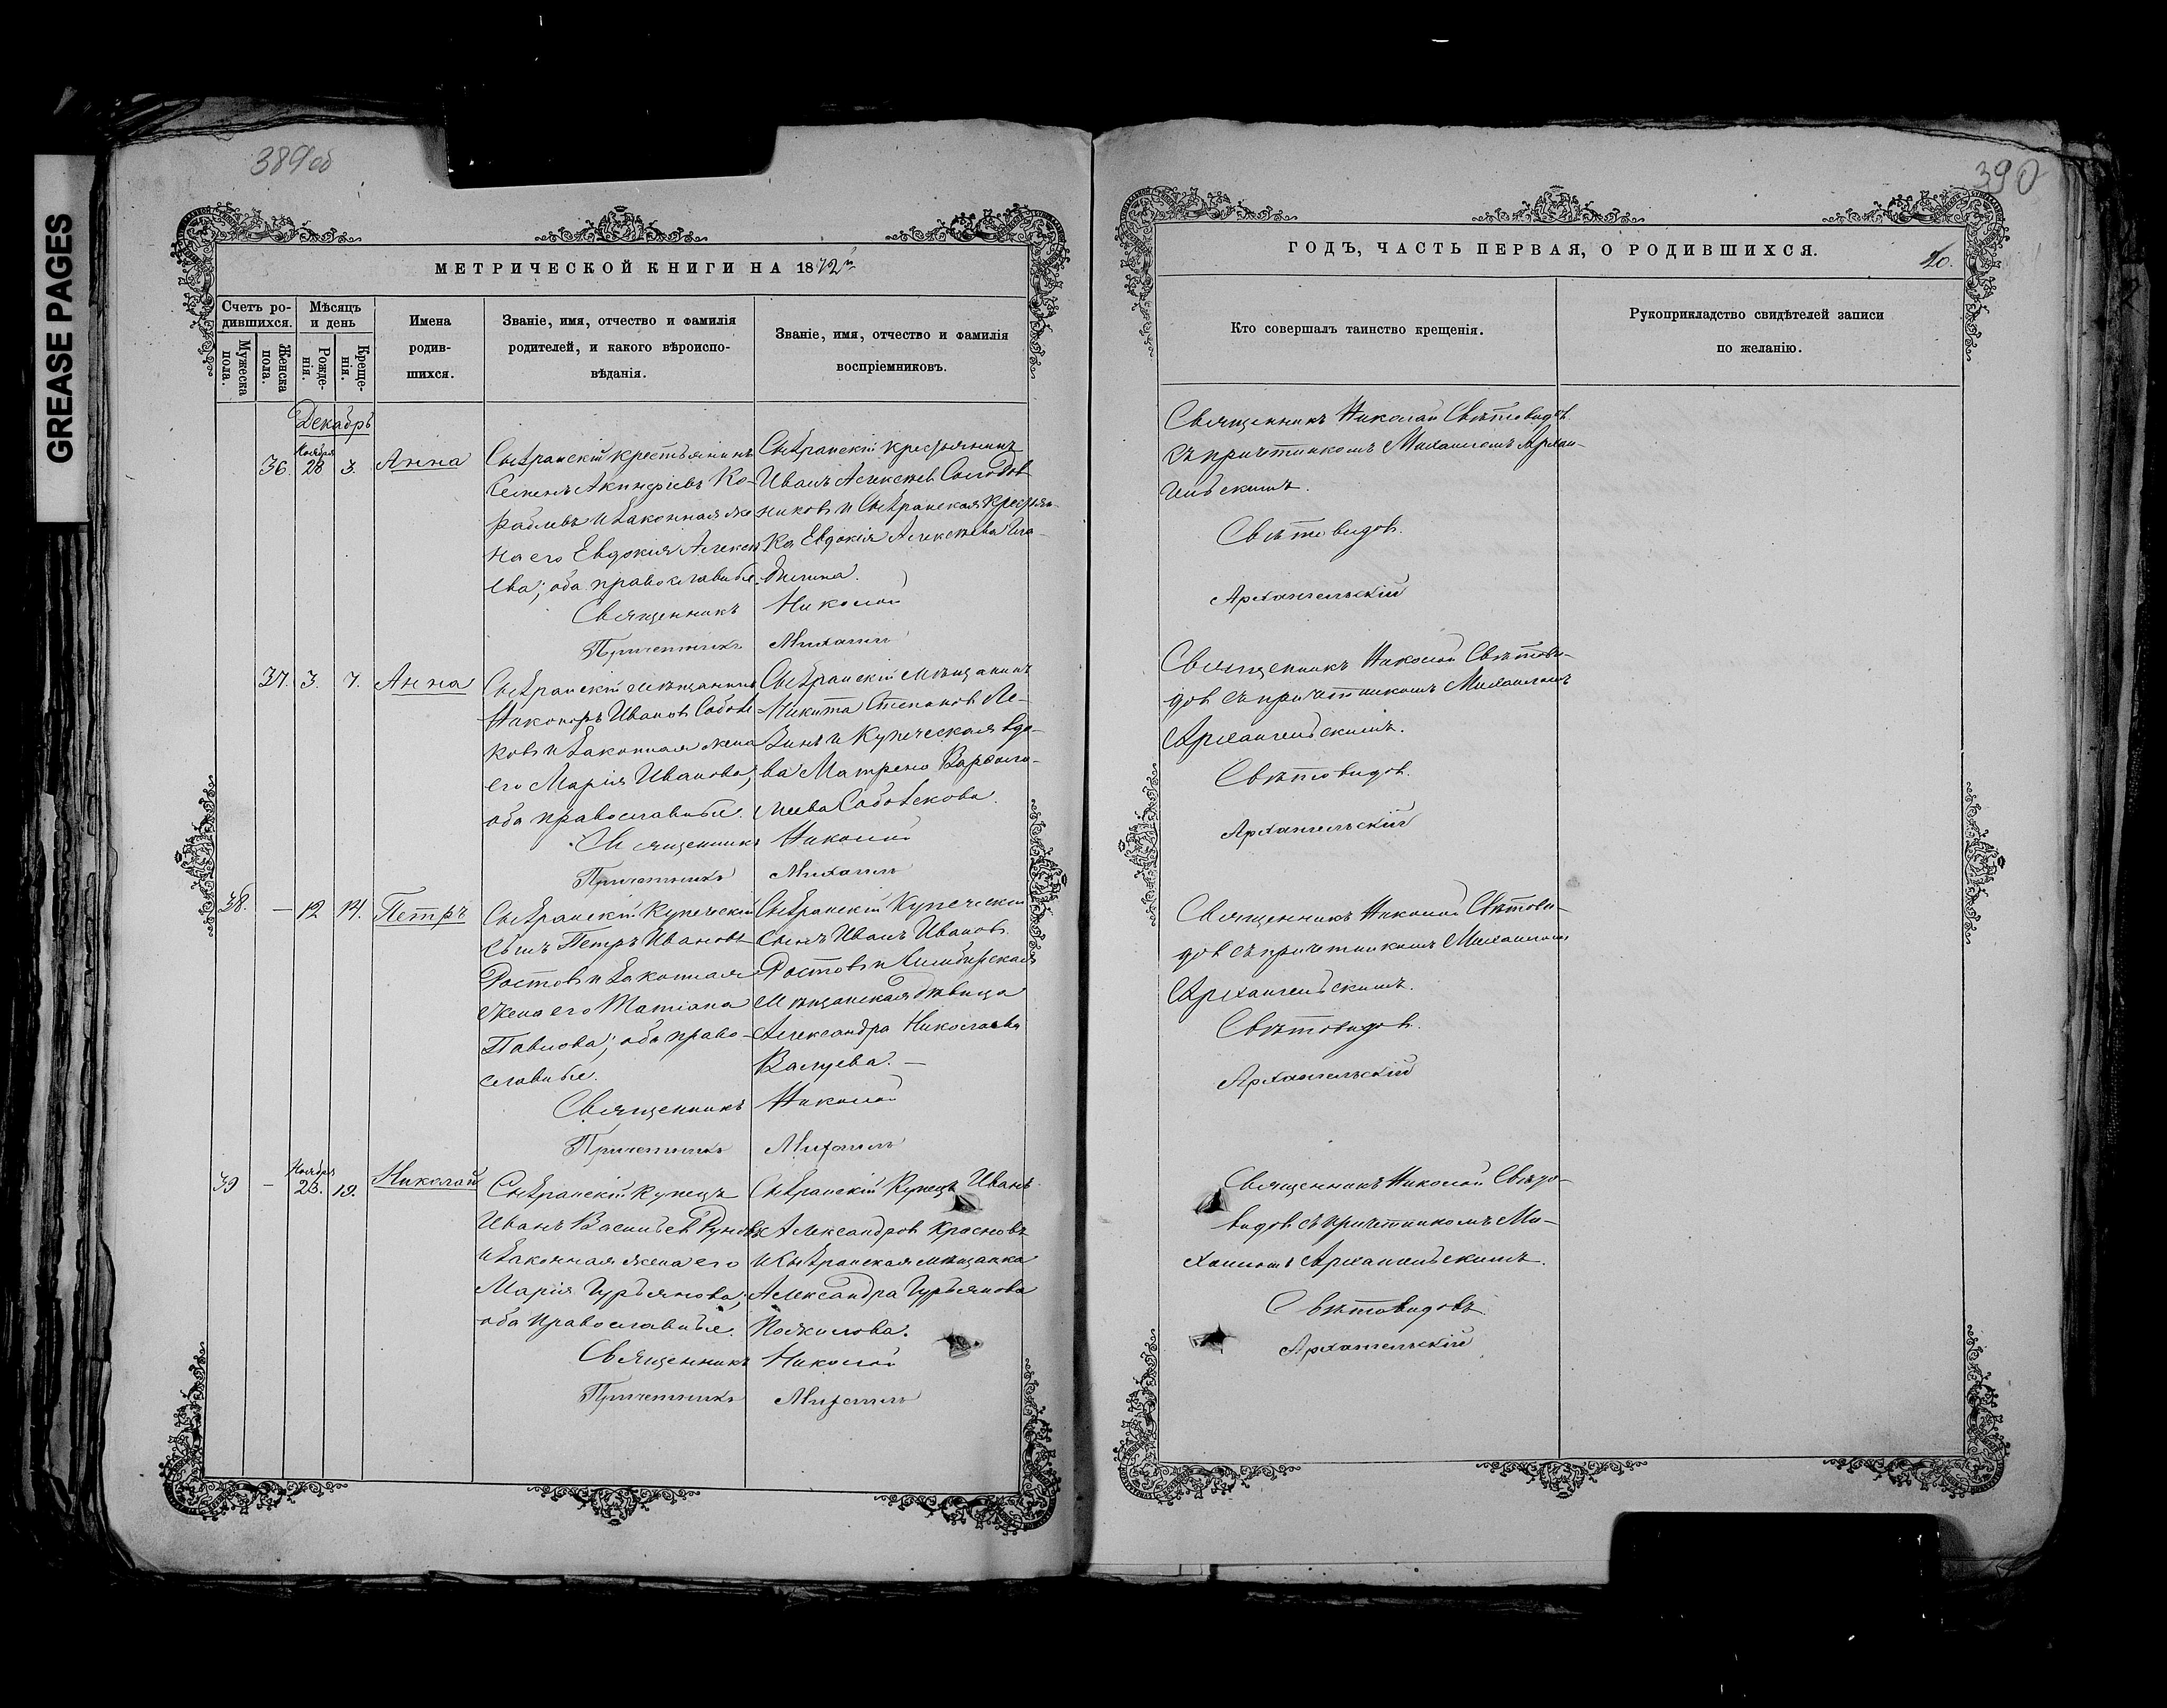 GREASE PAGES
389 об
МЕТРИЧЕСКОЙ КНИГИ НА 1872й
Счетъ ро-
дившихся.
Мужеска
пола.
Женска
пола.
Мѣсяцъ
и день
Рожде-
нія.
Креще-
нія.
Имена
родив-
шихся.
Званіе, имя, отчество и фамилія
родителей, и какого вѣроиспо-
вѣданія.
Званіе, имя, отчество и фамилія
воспріемниковъ.
Декабрь
36. Ноября 28 3. Анна
Сызранскій крестьянинъ
Семенъ Акинфіевъ Ко-
раблевъ и законная же
на его Евдокія Алексѣ
ева; оба православные.
Сызранскій крестьянинъ
Иванъ Алексѣев
и Сызранская крестьян-
ка Евдокія Алексѣева
Священникъ Николай
Причетникъ Михаилъ
37. 3. 7. Анна
Сызранскій мѣщанинъ
Никоноръ Иванов
и законная жена
его Марія Иванова;
оба православные.
Сызранскій мѣщанинъ
Никита Степанов Ле-
зинъ и Купеческая вдо-
ва Матрена Варфоло-
меева
Священникъ Николай
Причетникъ Михаилъ
38. — 12 14. Петръ
Сызранскій Купеческій
сынъ Петръ Ивановъ
Ростов и законная
жена его Татіана
Павлова; оба право-
славные.
Сызранскій Купеческій
сынъ Иванъ Иванов
Ростов и Симбирская
Мѣщанская дѣвица
Александра Николаева
Валуева. —
Священникъ Николай
Причетникъ Михаилъ
39 — Ноября 23. 19. Николай
Сызранскій купецъ
Иванъ Васильев
и законная жена его
Марія Гурьянова;
оба православные.
Сызранскій Купецъ Иванъ
Александров Красновъ
и Сызранская мѣщанка
Александра Гурьянова
Священникъ Николай
Причетникъ Михаилъ
390
ГОДЪ, ЧАСТЬ ПЕРВАЯ, О РОДИВШИХСЯ.
Кто совершалъ таинство крещенія.
Рукоприкладство свидѣтелей записи
по желанію.
Священникъ Николай Свѣтовидов
съ причетникомъ Михаиломъ Архан-
гельскимъ.
Свѣтовидов.
Архангельскій
Священникъ Николай Свѣтови-
дов съ причетникомъ Михаиломъ
Архангельскимъ.
Свѣтовидов.
Архангельскій
Священникъ Николай Свѣтови-
дов съ причетникомъ Михаиломъ
Архангельскимъ.
Свѣтовидов.
Архангельскій
Священникъ Николай Свѣто-
видов съ причетникомъ Ми-
хаиломъ Архангельскимъ.
Свѣтовидовъ.
Архангельскій